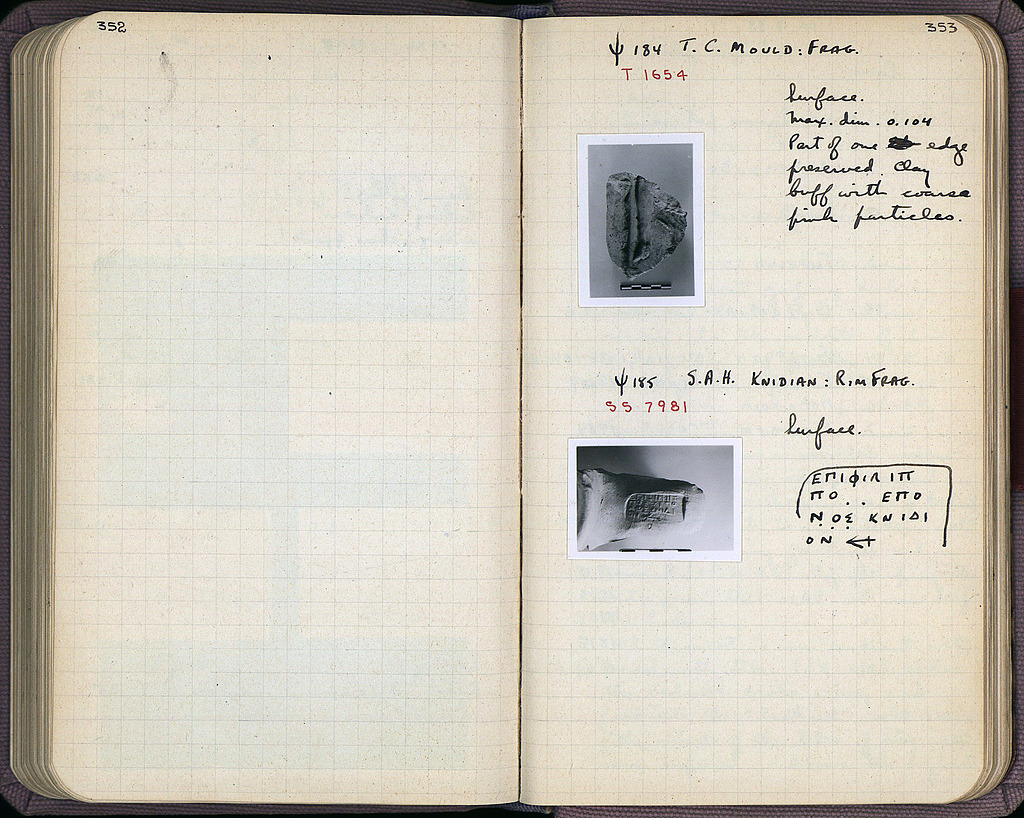 352
353
Ψ 184 T. C. MOULD: FRAG.
T 1654
Surface.
Max. dim. 0.104
Part of one edge
preserved. Clay
buff with coarse
pink particles.
Ψ 185 S.A.H. KNIDIAN: RIM FRAG.
SS 7981
Surface.
ΕΠΙΦΙΛΙΠ
ΠΟ . . ΕΠΟ
Ṇ ΟΣ̣ ΚΝΙΔΙ
ΟΝ